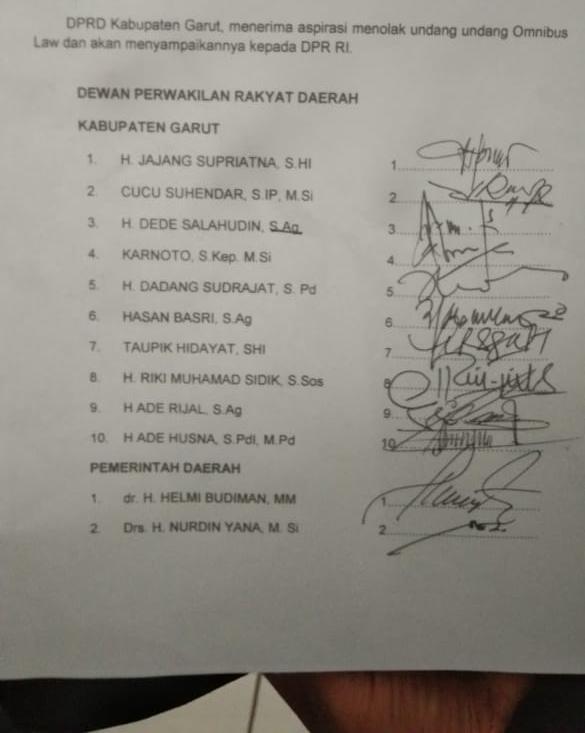 DPRD Kabupaten Garut, menerima aspirasi menolak undang undang Omnibus
Law dan akan menyampaikannya kepada DPR RI.
DEWAN PERWAKILAN RAKYAT DAERAH
KABUPATEN GARUT
1. H. JAJANG SUPRIATNA, S.HI 1
2. CUCU SUHENDAR, S.IP, M.Si 2
3. H. DEDE SALAHUDIN, S.Ag. 3
4. KARNOTO, S.Kep. M.Si 4
5. H. DADANG SUDRAJAT, S. Pd 5
6. HASAN BASRI, S.Ag 6
7. TAUPIK HIDAYAT, SHI 7
8. H. RIKI MUHAMAD SIDIK, S.Sos 8
9. H ADE RIJAL, S.Ag 9
10. H ADE HUSNA, S.PdI, M.Pd 10
PEMERINTAH DAERAH
1. dr. H. HELMI BUDIMAN, MM 1
2. Drs. H. NURDIN YANA, M. Si 2